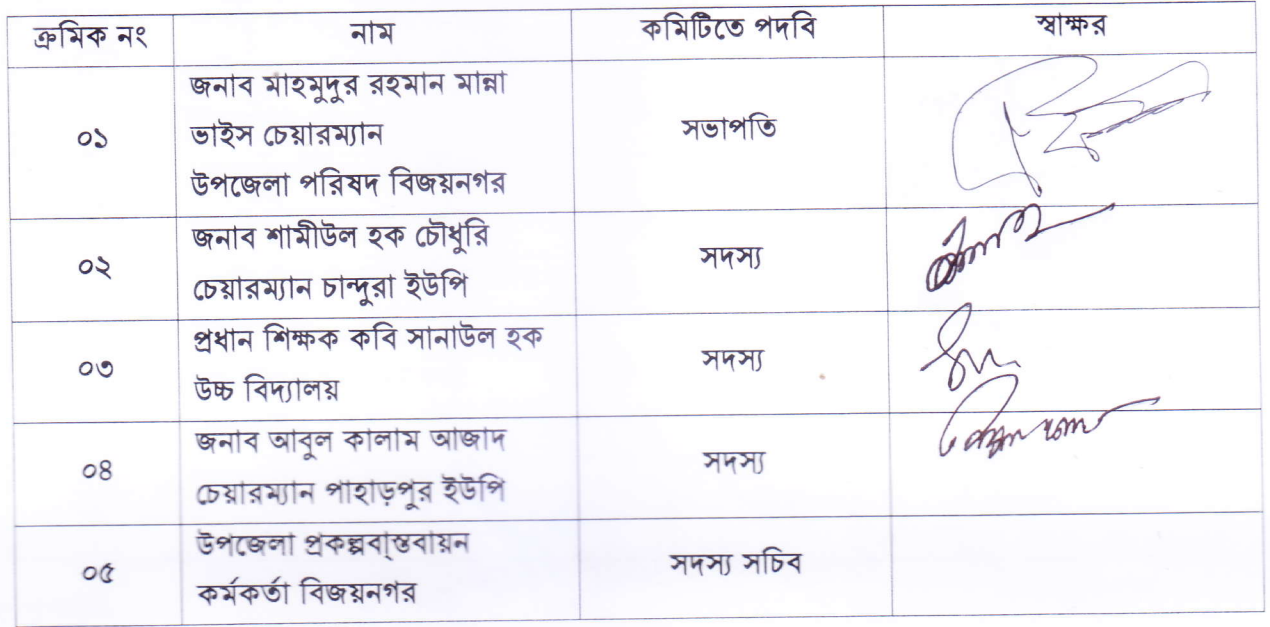 ক্রমিক নং নাম কমিটিতে পদবি স্বাক্ষর
জনাব মাহমুদুর রহমান মান্না
০১ ভাইস চেয়ারম্যান সভাপতি
উপজেলা পরিষদ বিজয়নগর
জনাব শামীউল হক চৌধুরি
০২ চেয়ারম্যান চান্দুরা ইউপি সদস্য
প্রধান শিক্ষক কবি সানাউল হক
০৩ উচ্চ বিদ্যালয় সদস্য
জনাব আবুল কালাম আজাদ
০৪ চেয়ারম্যান পাহাড়পুর ইউপি সদস্য
উপজেলা প্রকল্পবা্স্তবায়ন
০৫ কর্মকর্তা বিজয়নগর সদস্য সচিব